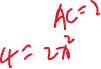 AC=?
4=2π²